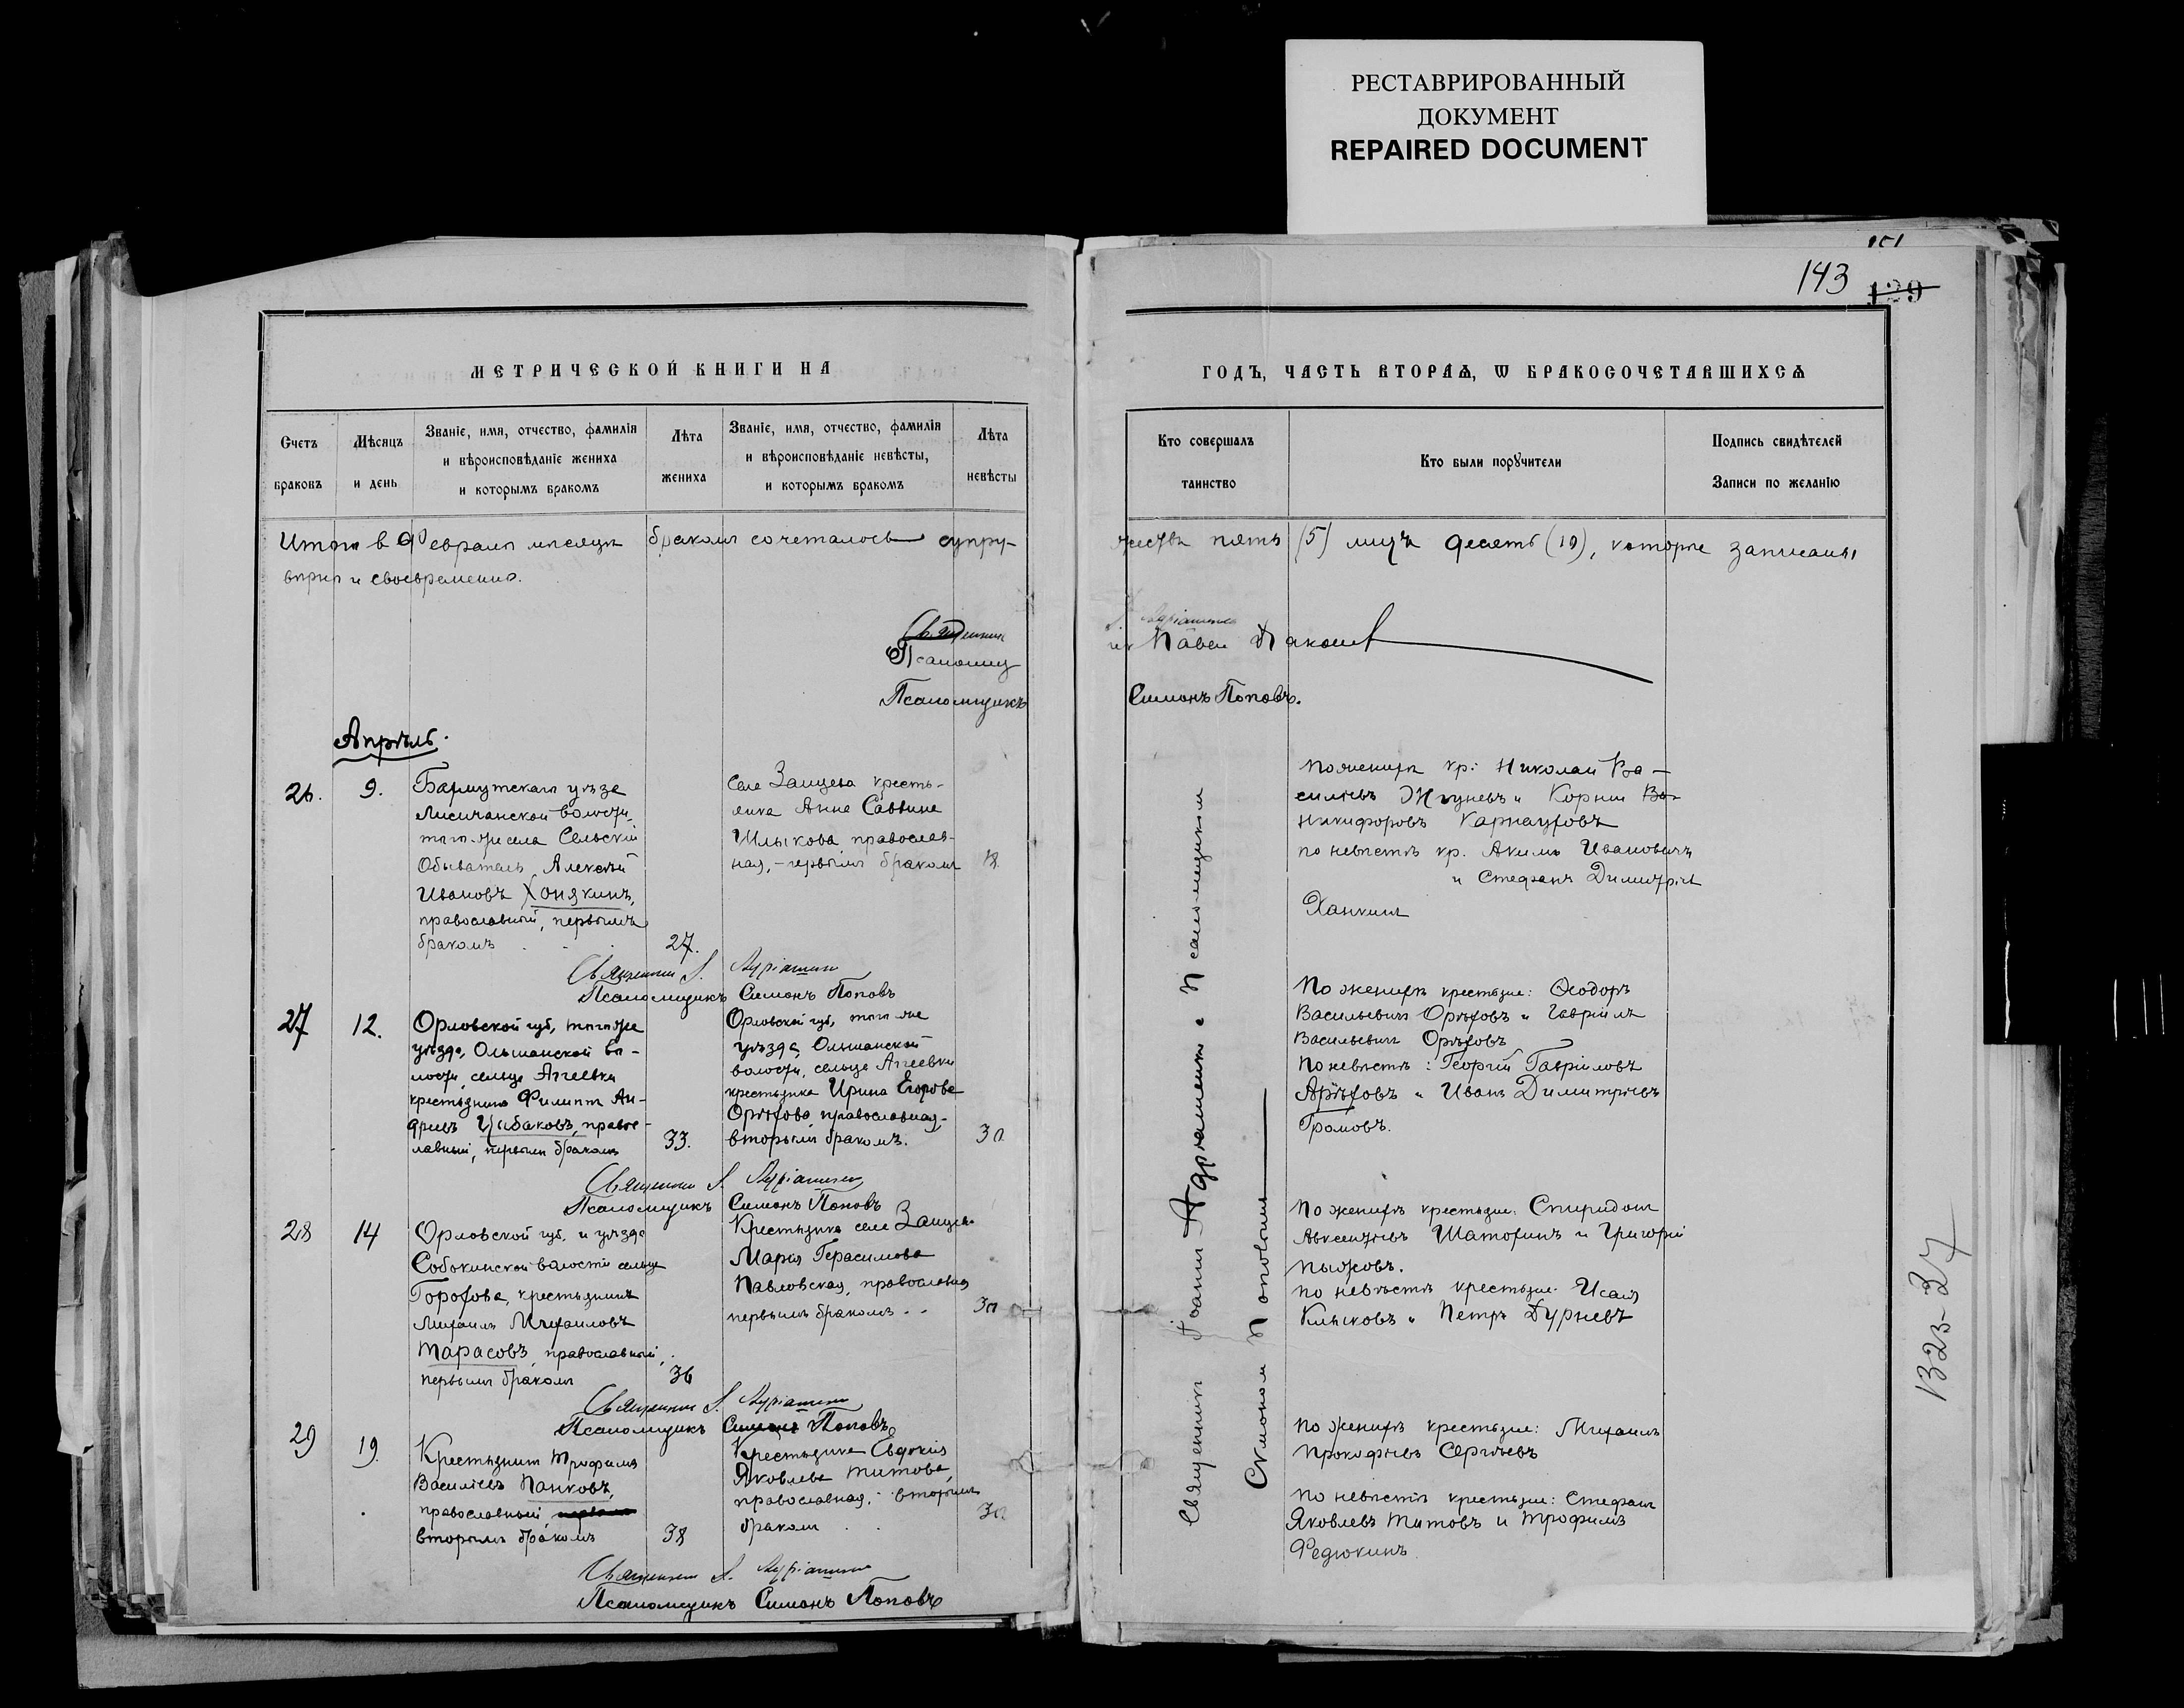 РЕСТАВРИРОВАННЫЙ
ДОКУМЕНТ
REPAIRED DOCUMENT
143
129
МЕТРИЧЕСКОЙ КНИГИ НА
Счетъ
браковъ
Мѣсяцъ
и день
Званіе, имя, отчество, фамилія
и вѣроисповѣданіе жениха
и которымъ бракомъ
Лѣта
жениха
Званіе, имя, отчество, фамилія
и вѣроисповѣданіе невѣсты,
и которымъ бракомъ
Лѣта
невѣсты
Итого в Февралѣ мѣсяцѣ бракомъ сочеталось супру-
вѣрно и своевременно.
Псаломщикъ
Апрѣль.
26.
9.
Бахмутскаго уѣзда
Лисичанской волости,
того-же села Сельскій
Обыватель Алексѣй
Ивановъ Хонякинъ,
православный, первымъ
бракомъ
27.
Села Зайцева кресть-
янка Анна Саввина
Шлыкова православ-
ная, - первымъ бракомъ
18
Священникъ І.
Псаломщикъ Симонъ Поповъ
27
12.
Орловской губ, того же
уѣзда, Ольшанской во-
лости, сельца Агеевки
крестьянинъ Филиппъ Ан-
дреевъ Цыбаковъ, правос-
лавный, первымъ бракомъ
33.
Орловской губ, того же
уѣзда, Ольшанской
волости, сельца Агеевки
крестьянка Ирина Егорова
Орѣхова, православная,
вторымъ бракомъ.
30
Священникъ І.
Псаломщикъ Симонъ Поповъ
28
14
Орловской губ. и уѣзда
Собакинской волости сельца
Горохова, крестьянинъ
Михаилъ Михаиловъ
Тарасовъ, православный,
первымъ бракомъ
36
Крестьянка села Зайцева
Марія Герасимова
Павловская, православная
первымъ бракомъ
30
Священникъ І.
Псаломщикъ Симонъ Поповъ
29
19.
Крестьянинъ Трофимъ
Василіевъ Панковъ,
православный
вторымъ бракомъ
38
Крестьянка Евдокія
Яковлева Титова,
православная, - вторымъ
бракомъ
30
Священникъ І.
Псаломщикъ Симонъ Поповъ
ГОДЪ, ЧАСТЬ ВТОРАѦ, Ѡ БРАКОСОЧЕТАВШИХСѦ
Кто совершалъ
таинство
Кто были порꙋчители
Подпись свидѣтелей
Записи по желанію
жества пять (5) лицъ десять (10), которые записаны
Павелъ
Симонъ Поповъ.
Священникъ Іоаннъ Адріаменко с Псаломщикомъ
Симономъ Поповымъ
По женихѣ кр: Николай Ва-
силіевъ Жгуневъ и Корнилъ
Никифоровъ Карнауховъ
по невѣстѣ кр. Акимъ Ивановичъ
и Стефанъ Димитріев
Ханкинъ
По женихѣ крестьяне: Ѳеодоръ
Васильевичъ Орѣховъ и Гавріилъ
Васильевичъ Орѣховъ
По невѣстѣ: Георгій Гавріиловъ
Арѣховъ и Иванъ Димитріевъ
Громовъ.
По женихѣ крестьяне: Спиридонъ
Авксентіевъ Шатохинъ и Григорій
Пыжовъ.
по невѣстѣ крестьяне: Исаія
Клыковъ и Петръ Дурневъ
По женихѣ крестьяне: Михаилъ
Прокофіевъ Сергѣевъ
по невѣстѣ крестьяне: Стефанъ
Яковлевъ Титовъ и Трофимъ
Федюкинъ